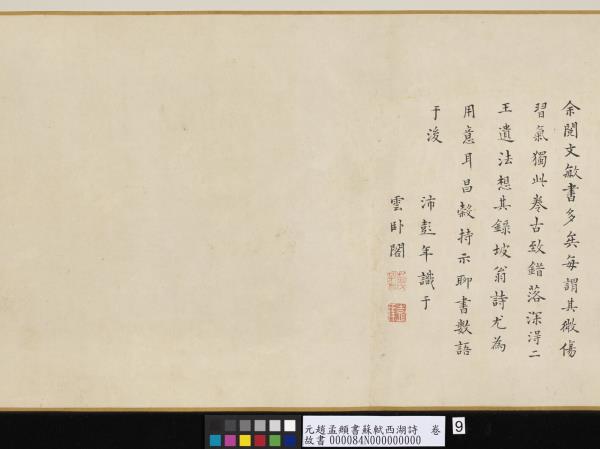 余閱文敏書多矣每謂其微傷
習氣獨此卷古致錯落深得二
王遺法想其錄坡翁詩尤為
用意耳昌穀持示聊書數語
于後
沛彭年識于
雲卧閣
元趙孟頫書蘇軾西湖詩 卷
故書 000084N000000000
9